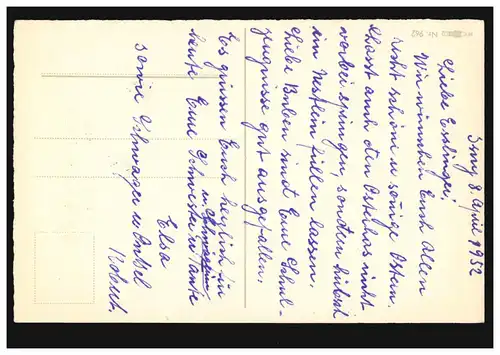 Isny 8. April 1952
Liebe Erolzheimer!
Wir wünschen Euch Allen
recht schöne u. sonnige Ostern.
Lasst auch den Osterhas nicht
vorbei springen, sondern hübsch
ein Nestlein füllen lassen.
Liebe Buben sind Eure Schul-
zeugnisse gut ausgefallen.
Es grüssen Euch herzlich für
heute Eure Schwester u. Tante
u. Schwägerin
Elsa
sowie Schwager u. Onkel
Robert.
Nr. 962